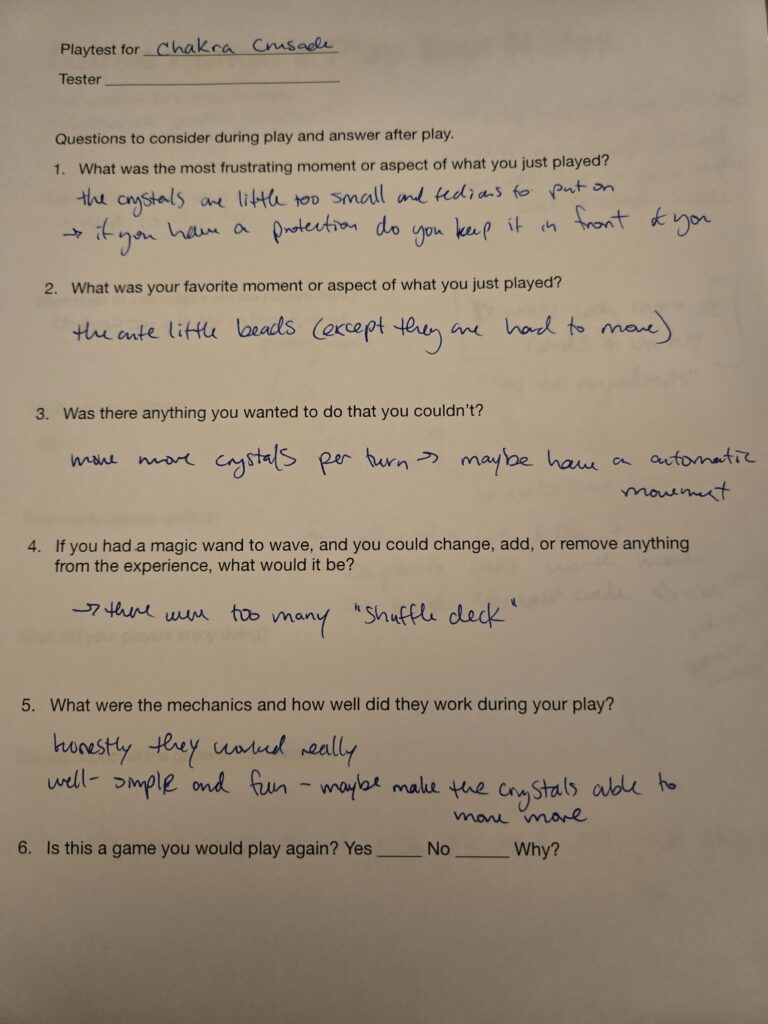 Playtest for Chakra Crusade
Tester
Questions to consider during play and answer after play.
1. What was the most frustrating moment or aspect of what you just played?
the crystals are little too small and tedious to put on
→ if you have a protection do you keep it in front of you
2. What was your favorite moment or aspect of what you just played?
the cute little beads (except they are hard to move)
3. Was there anything you wanted to do that you couldn't?
move more crystals per turn → maybe have a automatic
movement
4. If you had a magic wand to wave, and you could change, add, or remove anything
from the experience, what would it be?
→ there were too many "shuffle deck"
5. What were the mechanics and how well did they work during your play?
honestly they worked really
well - simple and fun - maybe make the crystals able to
move more
6. Is this a game you would play again? Yes ____ No ____ Why?